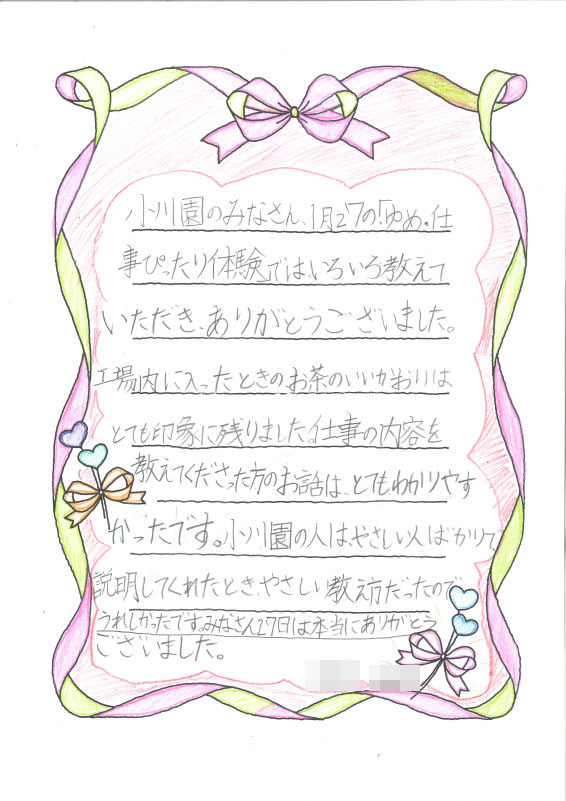 小川園のみなさん、1月27の「ゆめ・仕
事ぴったり体験では、いろいろ教えて
いただき、ありがとうございました。
工場内に入ったときのお茶のいいかおりは
とても印象に残りました。仕事の内容を
教えてくださった方のお話は、とてもわかりやす
かったです。小川園の人は、やさしい人ばかりで
説明してくれたとき、やさしい教え方だったので
うれしかったです。みなさん27日は本当にありがとう
ございました。